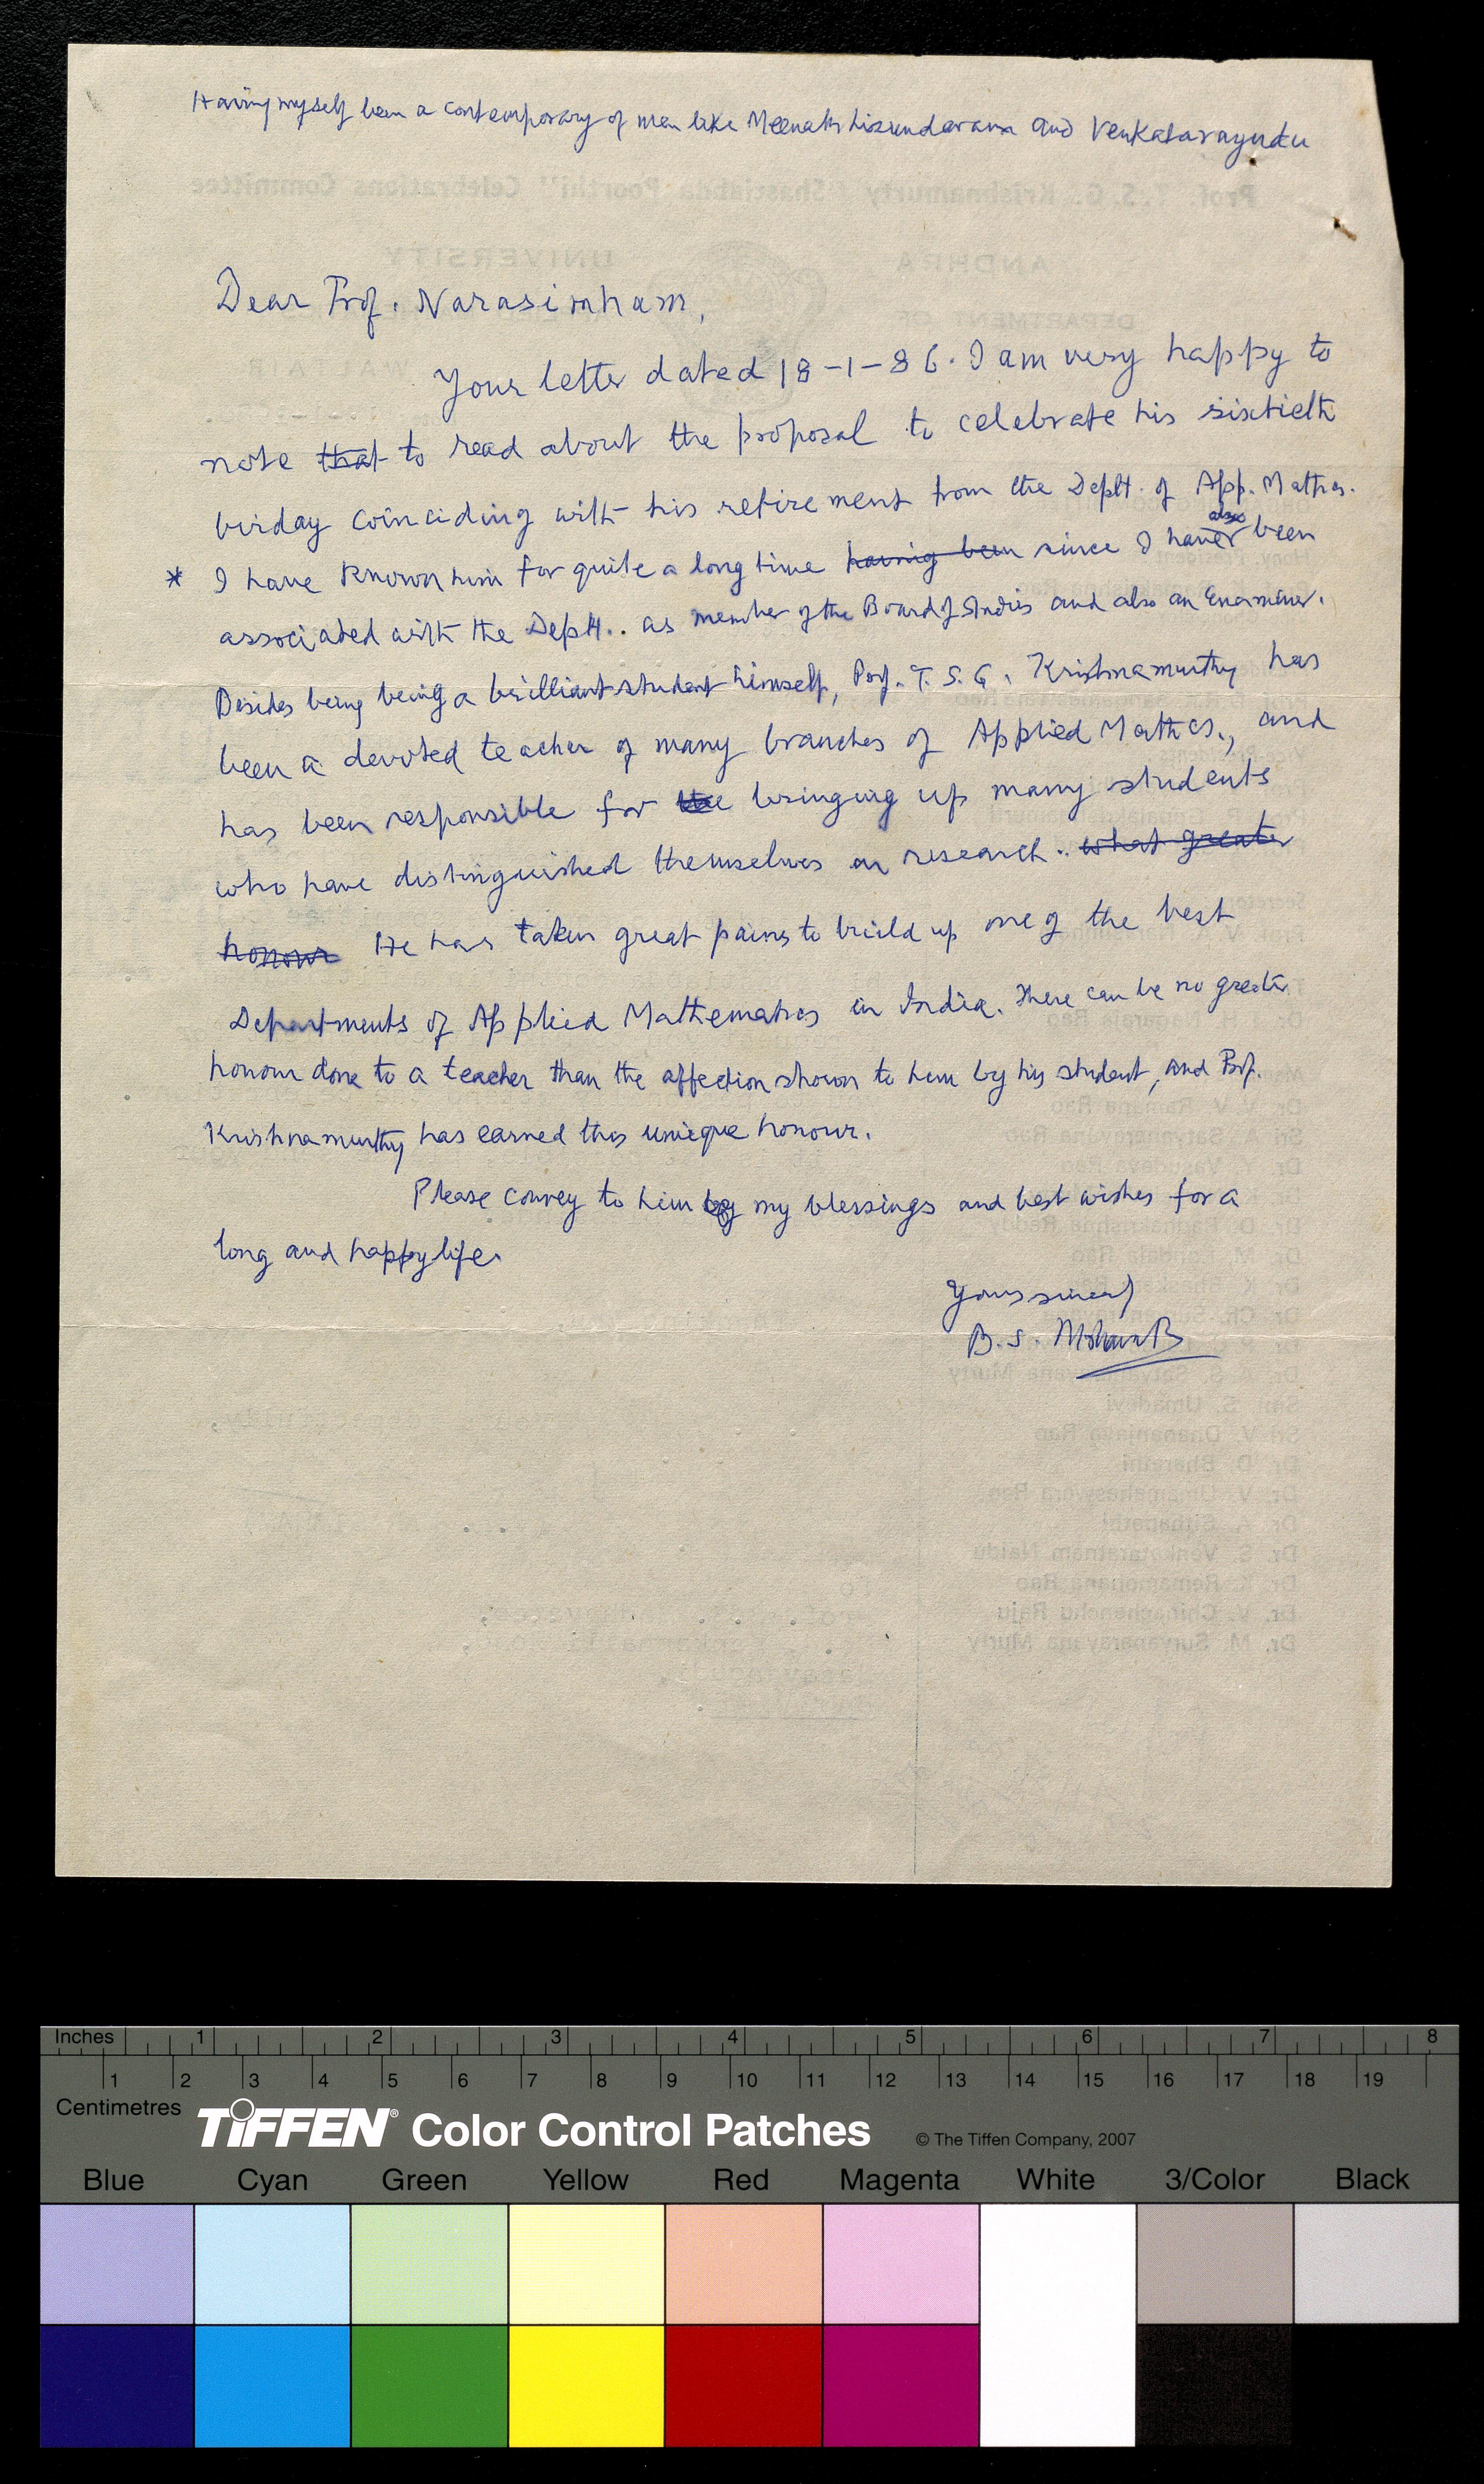 Having myself been a contemporary of men like Meenakshisundaram and Venkatarayudu
Dear Prof. Narasimham,
Your letter dated 18-1-86. I am very happy to
note that to read about the proposal to celebrate his sixtieth
birday coinciding with his retirement from the Deptt. of App. Mathes.
also
* I have known him for quite a long time having been since I have been
associated with the Deptt.. as member of the Board of Studies and also an Examiner.
Besides being being a brilliant student himself, Prof. T. S. G. Krishnamurthy has
been a devoted teacher of many branches of Applied Mathcs., and
has been responsible for the bringing up many students
who have distinguished themselves in research.. what greater
honour He has taken great pains to build up one of the best
Departments of Applied Mathematics in India. There can be no greater
honour done to a teacher than the affection shown to him by his student, and Prof.
Krishnamurthy has earned this unique honour.
Please convey to him my blessings and best wishes for a
long and happy life.
Yours sincerely
B. S.
Inches 1 2 3 4 5 6 7 8
1 2 3 4 5 6 7 8 9 10 11 12 13 14 15 16 17 18 19
Centimetres
TIFFEN® Color Control Patches © The Tiffen Company, 2007
Blue Cyan Green Yellow Red Magenta White 3/Color Black